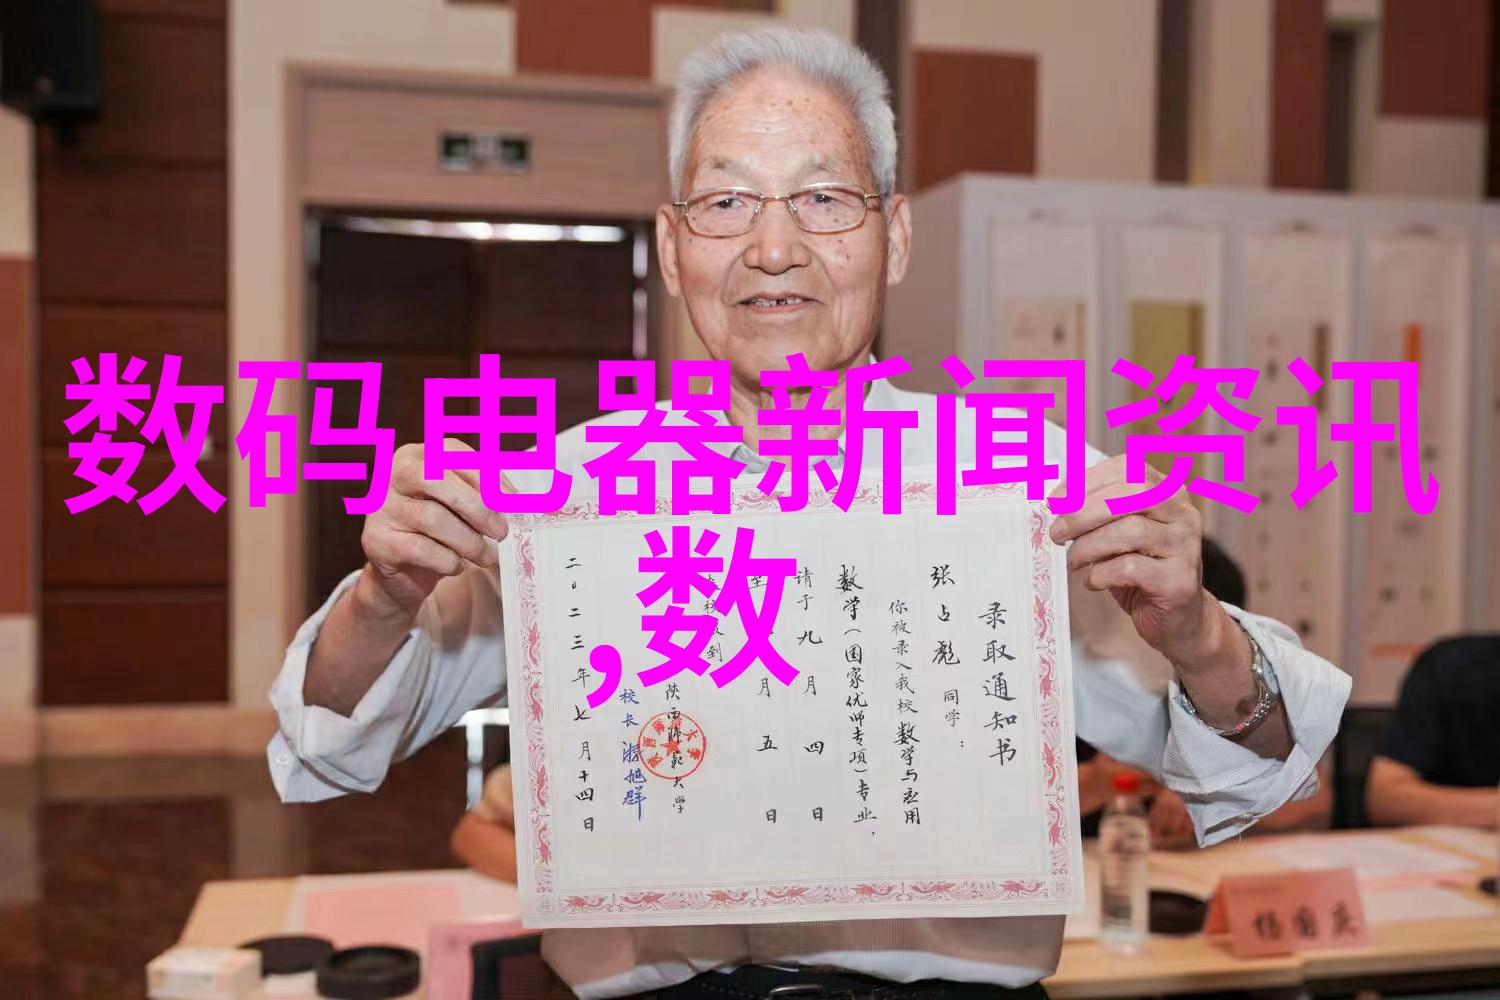 数码电器新闻资讯
,数
录取通知书
张占彪 同学：
你被录入我校 数学与应用
数学（国家优师专项）专业，
请于九月四日
至 月五日
校报到
陕西师范大学
校长 游旭群
二〇二三年七月十四日
杨国庆